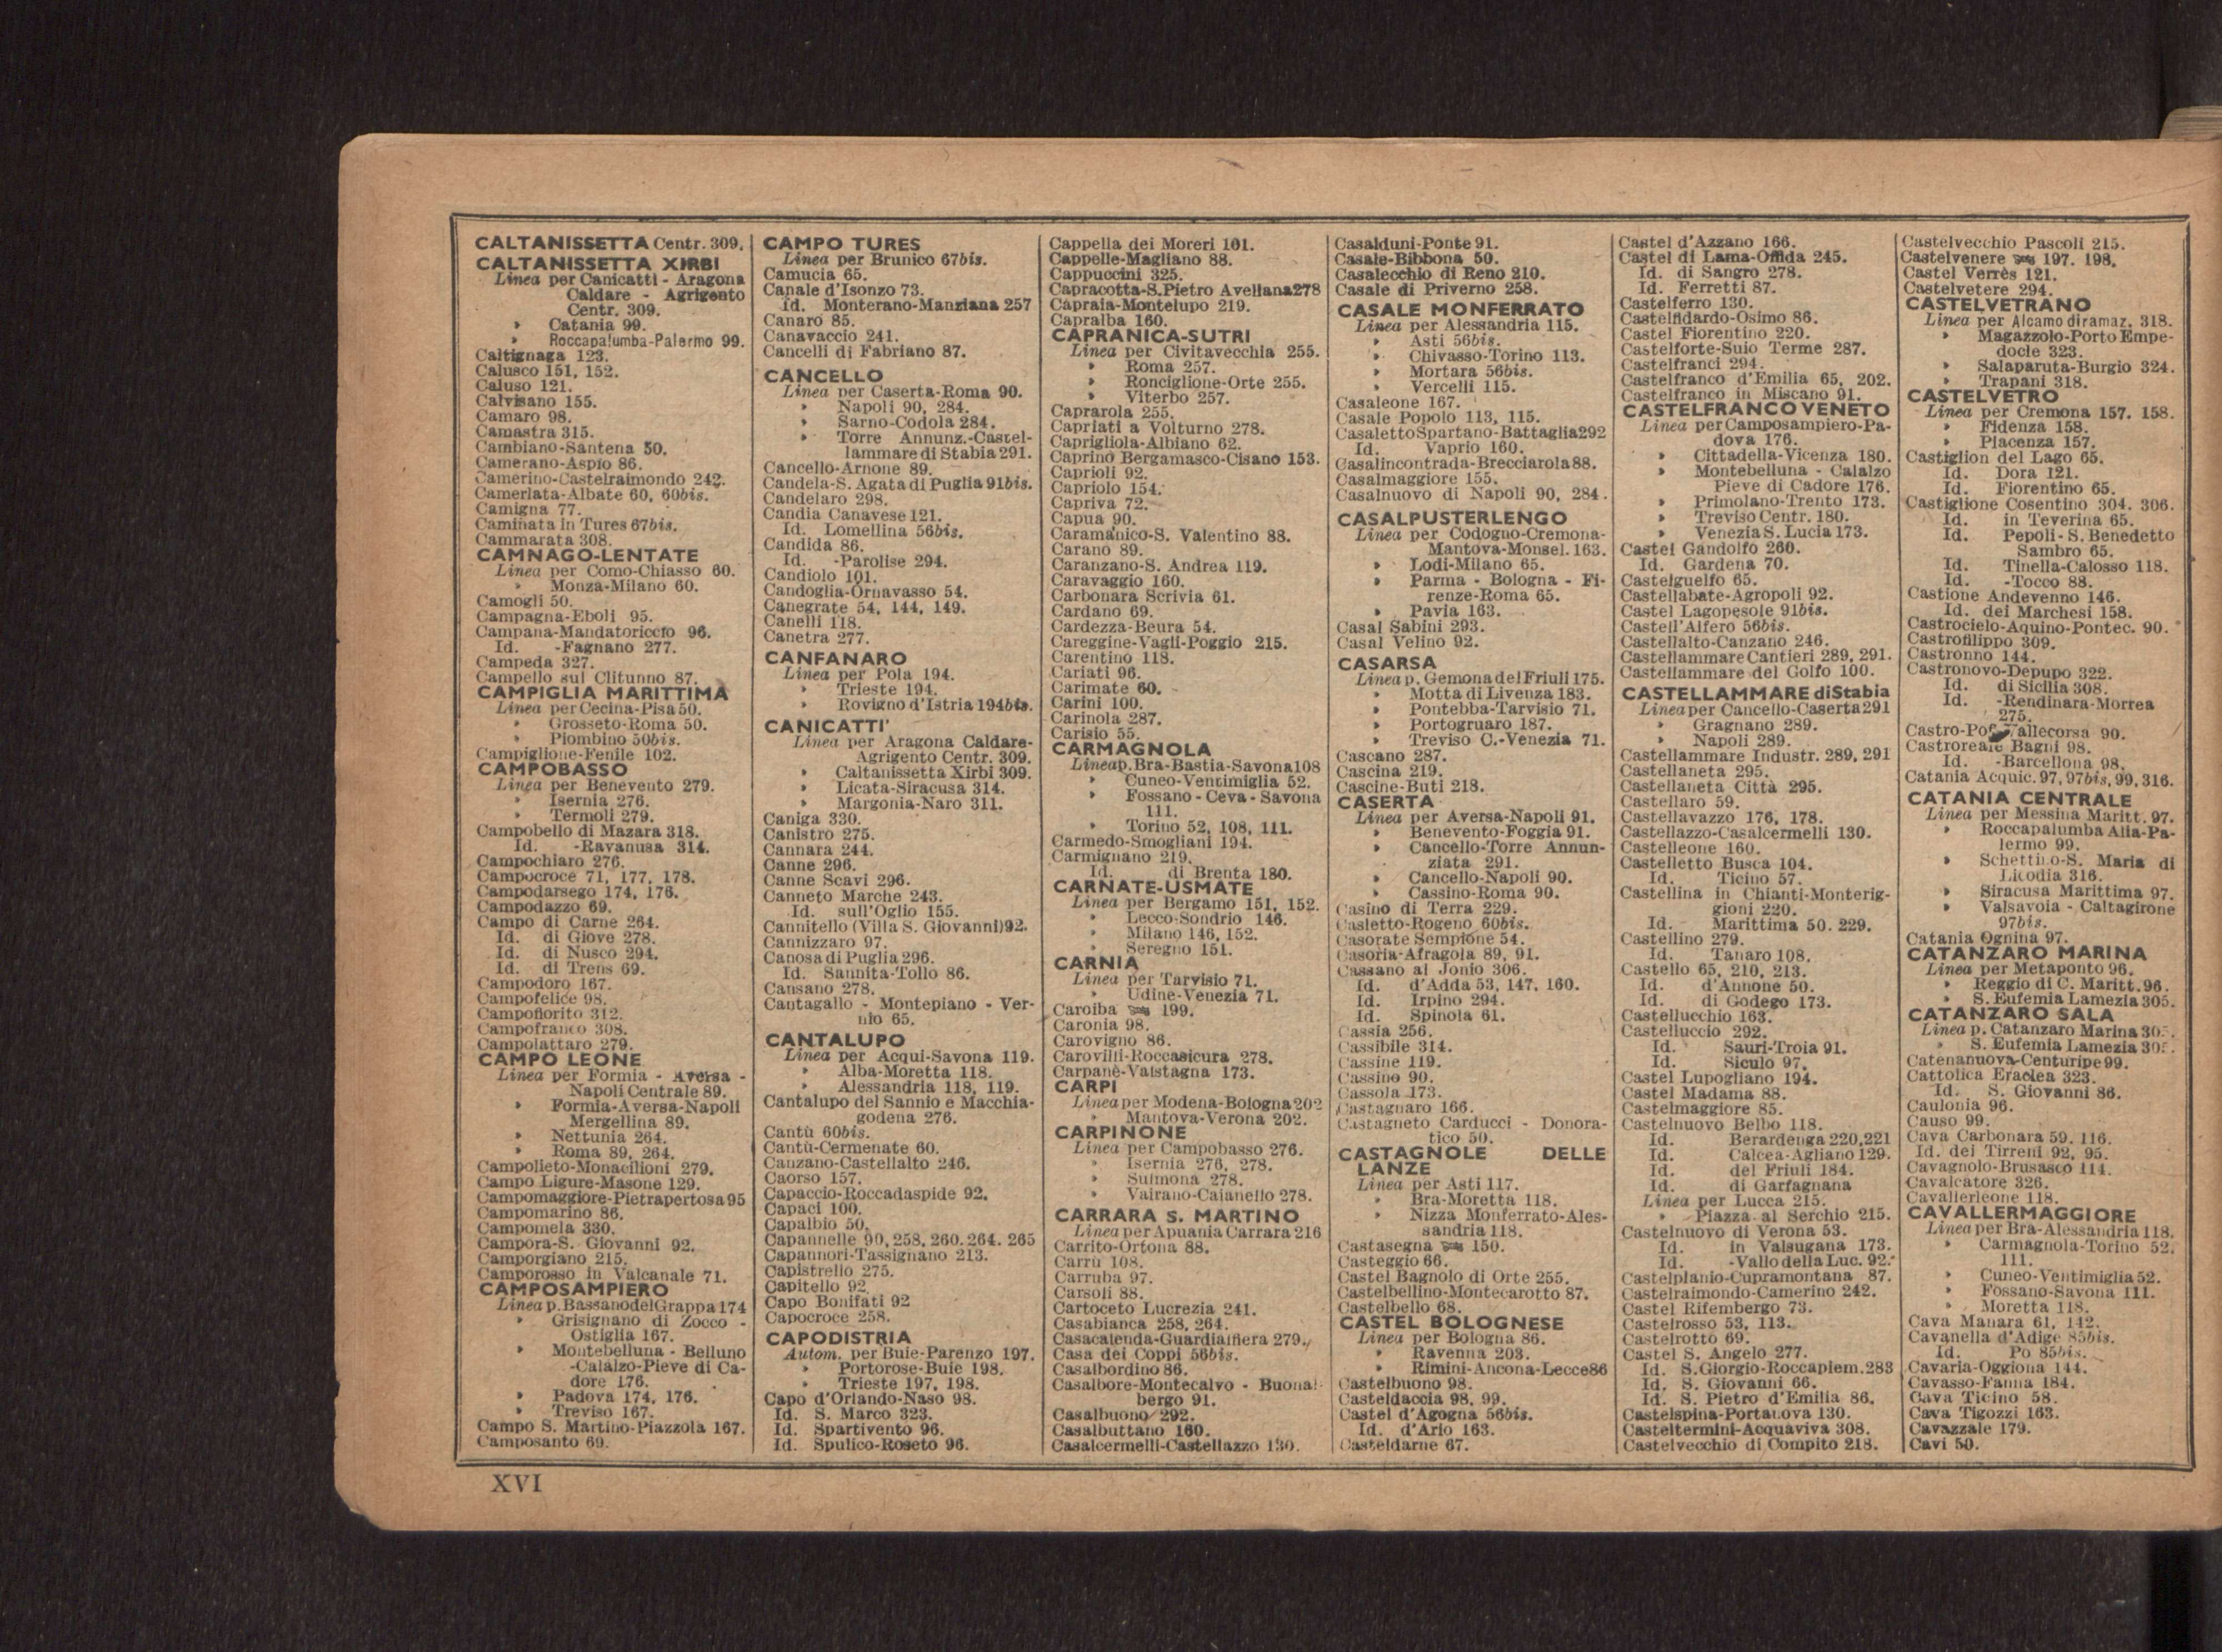 CALTANISSETTA Centr. 309.
CALTANISSETTA XIRBI
Linea per Canicatti - Aragona
Caldare - Agrigento
Centr. 309.
» Catania 99.
» Roccapalumba-Palermo 99.
Caltignaga 123.
Calusco 151, 152.
Caluso 121.
Calvisano 155.
Camaro 98.
Camastra 315.
Cambiano-Santena 50.
Camerano-Aspio 86.
Camerino-Castelraimondo 242.
Camerlata-Albate 60, 60bis.
Camigna 77.
Caminata in Tures 67bis.
Cammarata 308.
CAMNAGO-LENTATE
Linea per Como-Chiasso 60.
» Monza-Milano 60.
Camogli 50.
Campagna-Eboli 95.
Campana-Mandatoriccio 96.
Id. -Fagnano 277.
Campeda 327.
Campello sul Clitunno 87.
CAMPIGLIA MARITTIMA
Linea per Cecina-Pisa 50.
» Grosseto-Roma 50.
» Piombino 50bis.
Campiglione-Fenile 102.
CAMPOBASSO
Linea per Benevento 279.
» Isernia 276.
» Termoli 279.
Campobello di Mazara 318.
Id. -Ravanusa 314.
Campochiaro 276.
Campocroce 71, 177, 178.
Campodarsego 174, 176.
Campodazzo 69.
Campo di Carne 264.
Id. di Giove 278.
Id. di Nusco 294.
Id. di Trens 69.
Campodoro 167.
Campofelice 98.
Campofiorito 312.
Campofranco 308.
Campolattaro 279.
CAMPO LEONE
Linea per Formia - Aversa -
Napoli Centrale 89.
» Formia-Aversa-Napoli
Mergellina 89.
» Nettunia 264.
» Roma 89, 264.
Campolieto-Monacilioni 279.
Campo Ligure-Masone 129.
Campomaggiore-Pietrapertosa 95
Campomarino 86.
Campomela 330.
Campora-S. Giovanni 92.
Camporgiano 215.
Camporosso in Valcanale 71.
CAMPOSAMPIERO
Linea p. Bassano del Grappa 174
» Grisignano di Zocco -
Ostiglia 167.
» Montebelluna - Belluno
-Calalzo-Pieve di Ca-
dore 176.
» Padova 174, 176.
» Treviso 167.
Campo S. Martino-Piazzola 167.
Camposanto 69.
CAMPO TURES
Linea per Brunico 67bis.
Camucia 65.
Canale d'Isonzo 73.
Id. Monterano-Manziana 257
Canaro 85.
Canavaccio 241.
Cancelli di Fabriano 87.
CANCELLO
Linea per Caserta-Roma 90.
» Napoli 90, 284.
» Sarno-Codola 284.
» Torre Annunz.-Castel-
lammare di Stabia 291.
Cancello-Arnone 89.
Candela-S. Agata di Puglia 91bis.
Candelaro 298.
Candia Canavese 121.
Id. Lomellina 56bis.
Candida 86.
Id. -Parolise 294.
Candiolo 101.
Candoglia-Ornavasso 54.
Canegrate 54, 144, 149.
Canelli 118.
Canetra 277.
CANFANARO
Linea per Pola 194.
» Trieste 194.
» Rovigno d'Istria 194bis.
CANICATTI'
Linea per Aragona Caldare-
Agrigento Centr. 309.
» Caltanissetta Xirbi 309.
» Licata-Siracusa 314.
» Margonia-Naro 311.
Caniga 330.
Canistro 275.
Cannara 244.
Canne 296.
Canne Scavi 296.
Canneto Marche 243.
Id. sull'Oglio 155.
Cannitello (Villa S. Giovanni) 92.
Cannizzaro 97.
Canosa di Puglia 296.
Id. Sannita-Tollo 86.
Cansano 278.
Cantagallo - Montepiano - Ver-
nio 65.
CANTALUPO
Linea per Acqui-Savona 119.
» Alba-Moretta 118.
» Alessandria 118, 119.
Cantalupo del Sannio e Macchia-
godena 276.
Cantù 60bis.
Cantù-Cermenate 60.
Canzano-Castellalto 246.
Caorso 157.
Capaccio-Roccadaspide 92.
Capaci 100.
Capalbio 50.
Capannelle 90, 258, 260. 264. 265
Capannori-Tassignano 213.
Capistrello 275.
Capitello 92.
Capo Bonifati 92
Capocroce 258.
CAPODISTRIA
Autom. per Buie-Parenzo 197.
» Portorose-Buie 198.
» Trieste 197, 198.
Capo d'Orlando-Naso 98.
Id. S. Marco 323.
Id. Spartivento 96.
Id. Spulico-Roseto 96.
Cappella dei Moreri 101.
Cappelle-Magliano 88.
Cappuccini 325.
Capracotta-S. Pietro Avellana 278
Capraia-Montelupo 219.
Capralba 160.
CAPRANICA-SUTRI
Linea per Civitavecchia 255.
» Roma 257.
» Ronciglione-Orte 255.
» Viterbo 257.
Caprarola 255.
Capriati a Volturno 278.
Caprigliola-Albiano 62.
Caprino Bergamasco-Cisano 153.
Caprioli 92.
Capriolo 154.
Capriva 72.
Capua 90.
Caramanico-S. Valentino 88.
Carano 89.
Caranzano-S. Andrea 119.
Caravaggio 160.
Carbonara Scrivia 61.
Cardano 69.
Cardezza-Beura 54.
Careggine-Vagli-Poggio 215.
Carentino 118.
Cariati 96.
Carimate 60.
Carini 100.
Carinola 287.
Carisio 55.
CARMAGNOLA
Linea p. Bra-Bastia-Savona 108
» Cuneo-Ventimiglia 52.
» Fossano - Ceva - Savona
111.
» Torino 52, 108, 111.
Carmedo-Smogliani 194.
Carmignano 219.
Id. di Brenta 180.
CARNATE-USMATE
Linea per Bergamo 151, 152.
» Lecco-Sondrio 146.
» Milano 146, 152.
» Seregno 151.
CARNIA
Linea per Tarvisio 71.
» Udine-Venezia 71.
Caroiba 199.
Caronia 98.
Carovigno 86.
Carovilli-Roccasicura 278.
Carpanè-Valstagna 173.
CARPI
Linea per Modena-Bologna 202
» Mantova-Verona 202.
CARPINONE
Linea per Campobasso 276.
» Isernia 276, 278.
» Sulmona 278.
» Vairano-Caianello 278.
CARRARA S. MARTINO
Linea per Apuania Carrara 216
Carrito-Ortona 88.
Carrù 108.
Carruba 97.
Carsoli 88.
Cartoceto Lucrezia 241.
Casabianca 258, 264.
Casacalenda-Guardialfiera 279.
Casa dei Coppi 56bis.
Casalbordino 86.
Casalbore-Montecalvo - Buonal-
bergo 91.
Casalbuono 292.
Casalbuttano 160.
Casalcermelli-Castellazzo 130.
Casalduni-Ponte 91.
Casale-Bibbona 50.
Casalecchio di Reno 210.
Casale di Priverno 258.
CASALE MONFERRATO
Linea per Alessandria 115.
» Asti 56bis.
» Chivasso-Torino 113.
» Mortara 56bis.
» Vercelli 115.
Casaleone 167.
Casale Popolo 113, 115.
Casaletto Spartano-Battaglia 292
Id. Vaprio 160.
Casalincontrada-Brecciarola 88.
Casalmaggiore 155.
Casalnuovo di Napoli 90, 284.
CASALPUSTERLENGO
Linea per Codogno-Cremona-
Mantova-Monsel. 163.
» Lodi-Milano 65.
» Parma - Bologna - Fi-
renze-Roma 65.
» Pavia 163.
Casal Sabini 293.
Casal Velino 92.
CASARSA
Linea p. Gemona del Friuli 175.
» Motta di Livenza 183.
» Pontebba-Tarvisio 71.
» Portogruaro 187.
» Treviso C.-Venezia 71.
Cascano 287.
Cascina 219.
Cascine-Buti 218.
CASERTA
Linea per Aversa-Napoli 91.
» Benevento-Foggia 91.
» Cancello-Torre Annun-
ziata 291.
» Cancello-Napoli 90.
» Cassino-Roma 90.
Casino di Terra 229.
Casletto-Rogeno 60bis.
Casorate Sempione 54.
Casoria-Afragola 89, 91.
Cassano al Jonio 306.
Id. d'Adda 53, 147, 160.
Id. Irpino 294.
Id. Spinola 61.
Cassia 256.
Cassibile 314.
Cassine 119.
Cassino 90.
Cassola 173.
Castagnaro 166.
Castagneto Carducci - Donora-
tico 50.
CASTAGNOLE DELLE
LANZE
Linea per Asti 117.
» Bra-Moretta 118.
» Nizza Monferrato-Ales-
sandria 118.
Castasegna 150.
Casteggio 66.
Castel Bagnolo di Orte 255.
Castelbellino-Montecarotto 87.
Castelbello 68.
CASTEL BOLOGNESE
Linea per Bologna 86.
» Ravenna 203.
» Rimini-Ancona-Lecce 86
Castelbuono 98.
Casteldaccia 98, 99.
Castel d'Agogna 56bis.
Id. d'Ario 163.
Casteldarne 67.
Castel d'Azzano 166.
Castel di Lama-Offida 245.
Id. di Sangro 278.
Id. Ferretti 87.
Castelferro 130.
Castelfidardo-Osimo 86.
Castel Fiorentino 220.
Castelforte-Suio Terme 287.
Castelfranci 294.
Castelfranco d'Emilia 65, 202.
Castelfranco in Miscano 91.
CASTELFRANCO VENETO
Linea per Camposampiero-Pa-
dova 176.
» Cittadella-Vicenza 180.
» Montebelluna - Calalzo
Pieve di Cadore 176.
» Primolano-Trento 173.
» Treviso Centr. 180.
» Venezia S. Lucia 173.
Castel Gandolfo 260.
Id. Gardena 70.
Castelguelfo 65.
Castellabate-Agropoli 92.
Castel Lagopesole 91bis.
Castell'Alfero 56bis.
Castellalto-Canzano 246.
Castellammare Cantieri 289, 291.
Castellammare del Golfo 100.
CASTELLAMMARE di Stabia
Linea per Cancello-Caserta 291
» Gragnano 289.
» Napoli 289.
Castellammare Industr. 289, 291
Castellaneta 295.
Castellaneta Città 295.
Castellaro 59.
Castellavazzo 176, 178.
Castellazzo-Casalcermelli 130.
Castelleone 160.
Castelletto Busca 104.
Id. Ticino 57.
Castellina in Chianti-Monterig-
gioni 220.
Id. Marittima 50. 229.
Castellino 279.
Id. Tanaro 108.
Castello 65, 210, 213.
Id. d'Annone 50.
Id. di Godego 173.
Castellucchio 163.
Castelluccio 292.
Id. Sauri-Troia 91.
Id. Siculo 97.
Castel Lupogliano 194.
Castel Madama 88.
Castelmaggiore 85.
Castelnuovo Belbo 118.
Id. Berardenga 220,221
Id. Calcea-Agliano 129.
Id. del Friuli 184.
Id. di Garfagnana
Linea per Lucca 215.
» Piazza al Serchio 215.
Castelnuovo di Verona 53.
Id. in Valsugana 173.
Id. -Vallo della Luc. 92.
Castelplanio-Cupramontana 87.
Castelraimondo-Camerino 242.
Castel Rifembergo 73.
Castelrosso 53, 113.
Castelrotto 69.
Castel S. Angelo 277.
Id. S. Giorgio-Roccapiem. 283
Id. S. Giovanni 66.
Id. S. Pietro d'Emilia 86.
Castelspina-Portanova 130.
Casteltermini-Acquaviva 308.
Castelvecchio di Compito 218.
Castelvecchio Pascoli 215.
Castelvenere 197. 198.
Castel Verrès 121.
Castelvetere 294.
CASTELVETRANO
Linea per Alcamo diramaz. 318.
» Magazzolo-Porto Empe-
docle 323.
» Salaparuta-Burgio 324.
» Trapani 318.
CASTELVETRO
Linea per Cremona 157. 158.
» Fidenza 158.
» Piacenza 157.
Castiglion del Lago 65.
Id. Dora 121.
Id. Fiorentino 65.
Castiglione Cosentino 304. 306.
Id. in Teverina 65.
Id. Pepoli - S. Benedetto
Sambro 65.
Id. Tinella-Calosso 118.
Id. -Tocco 88.
Castione Andevenno 146.
Id. dei Marchesi 158.
Castrocielo-Aquino-Pontec. 90.
Castrofilippo 309.
Castronno 144.
Castronovo-Depupo 322.
Id. di Sicilia 308.
Id. -Rendinara-Morrea
275.
Castro-Po allecorsa 90.
Castroreale Bagni 98.
Id. -Barcellona 98.
Catania Acquic. 97, 97bis, 99, 316.
CATANIA CENTRALE
Linea per Messina Maritt. 97.
» Roccapalumba Alia-Pa-
lermo 99.
» Schettino-S. Maria di
Licodia 316.
» Siracusa Marittima 97.
» Valsavoia - Caltagirone
97bis.
Catania Ognina 97.
CATANZARO MARINA
Linea per Metaponto 96.
» Reggio di C. Maritt. 96.
» S. Eufemia Lamezia 305.
CATANZARO SALA
Linea p. Catanzaro Marina 305.
» S. Eufemia Lamezia 305.
Catenanuova-Centuripe 99.
Cattolica Eraclea 323.
Id. S. Giovanni 86.
Caulonia 96.
Causo 99.
Cava Carbonara 59, 116.
Id. dei Tirreni 92, 95.
Cavagnolo-Brusasco 114.
Cavalcatore 326.
Cavallerleone 118.
CAVALLERMAGGIORE
Linea per Bra-Alessandria 118.
» Carmagnola-Torino 52,
111.
» Cuneo-Ventimiglia 52.
» Fossano-Savona 111.
» Moretta 118.
Cava Manara 61, 142.
Cavanella d'Adige 85bis.
Id. Po 85bis.
Cavaria-Oggiona 144.
Cavasso-Fanna 184.
Cava Ticino 58.
Cava Tigozzi 163.
Cavazzale 179.
Cavi 50.
XVI